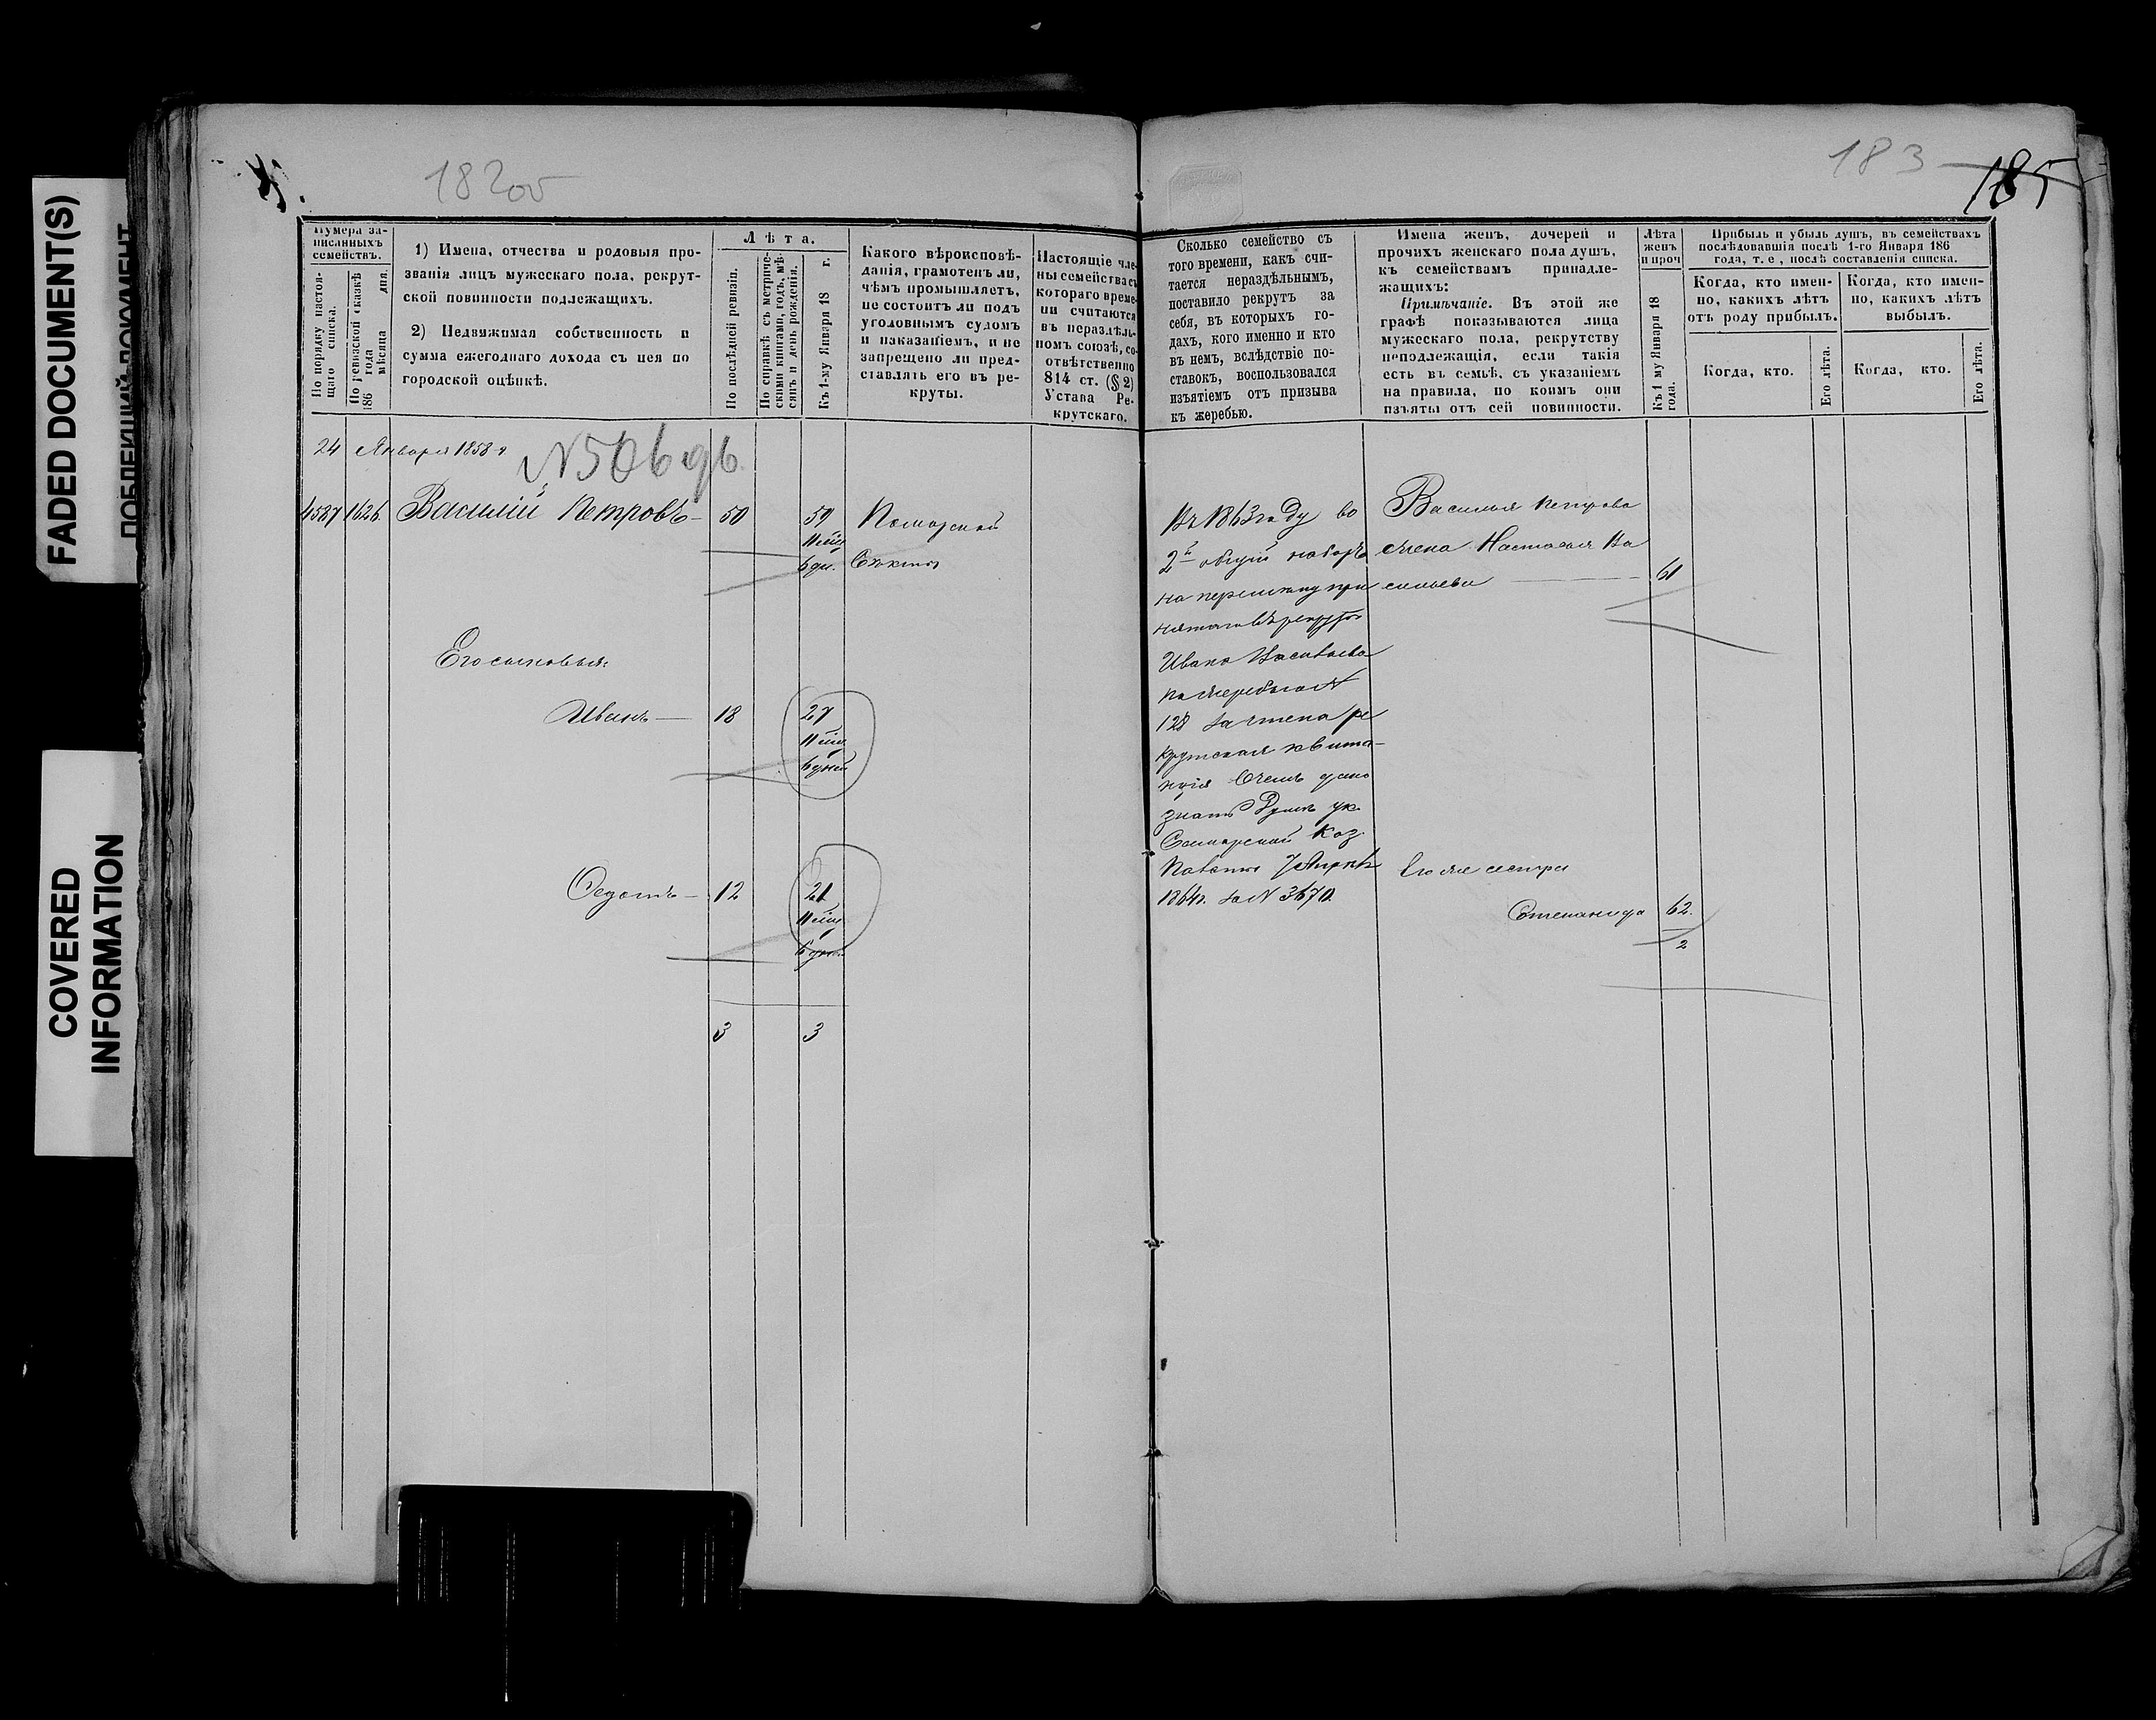 FADED DOCUMENT(S)
COVERED
INFORMATION
182об
183
185
Нумера за-
писанныхъ
семействъ.
По порядку настоя-
щаго списка.
По ревизской сказкѣ
186 года мѣсяца дня.
1) Имена, отчества и родовыя про-
званія лицъ мужескаго пола, рекрут-
ской повинности подлежащихъ.
2) Недвижимая собственность и
сумма ежегоднаго дохода съ нея по
городской оцѣнкѣ.
Лѣта.
По послѣдней ревизіи.
По справкѣ съ метриче-
скими книгами, годъ, мѣ-
сяцъ и день рожденія.
Къ 1-му Января 18 г.
Какого вѣроисповѣ-
данія, грамотенъ ли,
чѣмъ промышляетъ,
не состоитъ ли подъ
уголовнымъ судомъ
и наказаніемъ, и не
запрещено ли пред-
ставлять его въ ре-
круты.
Настоящіе чле-
ны семейства съ
котораго време-
ни считаются
въ нераздѣль-
номъ союзѣ, со-
отвѣтственно
814 ст. (§ 2)
Устава Ре-
крутскаго.
Сколько семейство съ
того времени, какъ счи-
тается нераздѣльнымъ,
поставило рекрутъ за
себя, въ которыхъ го-
дахъ, кого именно и кто
въ немъ, вслѣдствіе по-
ставокъ, воспользовался
изъятіемъ отъ призыва
къ жеребью.
Имена женъ, дочерей и
прочихъ женскаго пола душъ,
къ семействамъ принадле-
жащихъ:
Примѣчаніе. Въ этой же
графѣ показываются лица
мужескаго пола, рекрутству
неподлежащія, если такія
есть въ семьѣ, съ указаніемъ
на правила, по коимъ они
изъяты отъ сей повинности.
Лѣта
женъ
и проч
Къ 1 му Января 18
года.
Прибыль и убыль душъ, въ семействахъ
послѣдовавшія послѣ 1-го Января 186
года, т. е, послѣ составленія списка.
Когда, кто имен-
но, какихъ лѣтъ
отъ роду прибылъ.
Когда, кто имен-
но, какихъ лѣтъ
выбылъ.
Когда, кто.
Его лѣта.
Когда, кто.
Его лѣта.
24 Января 1858 г
N 506
4537 1626. Василій Петровъ 50 59 Поморской
11 мѣц
6 дн. Секты
Его сыновья:
Иванъ 18 27
11 мѣц
6 дней
Федотъ 12 21
11 мѣц
6 дней
3 3
Въ 1863 году во
2й общій наборъ
при
нятаго въ рекруты
Ивана Васильева
по жеребью N
128 зачтена ре
крутская квитан
ція
знать Думѣ ук
Самарской Каз
Палаты 7 Апрѣля
1864 г. за N 3670.
Василья Петрова
жена Настасья Ва
сильева 61
Его же сестра
Степанида 62.
2